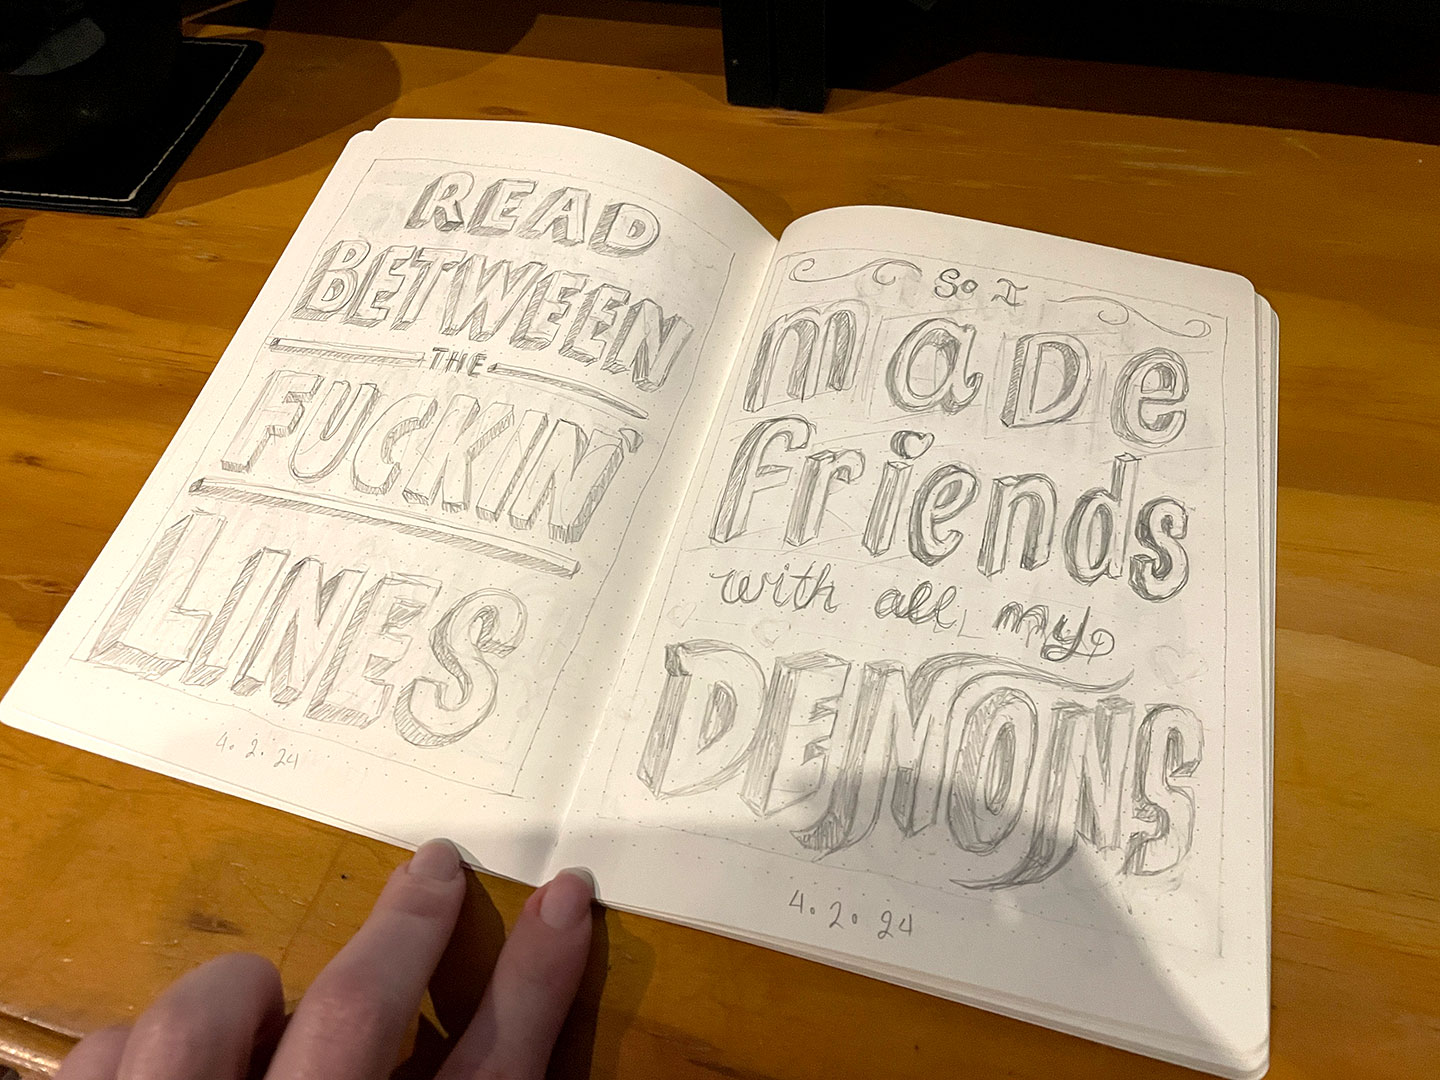 READ
BETWEEN
THE
FUCKIN'
LINES
4.2.24
So I
made
friends
with all my
DEMONS
4.2.24